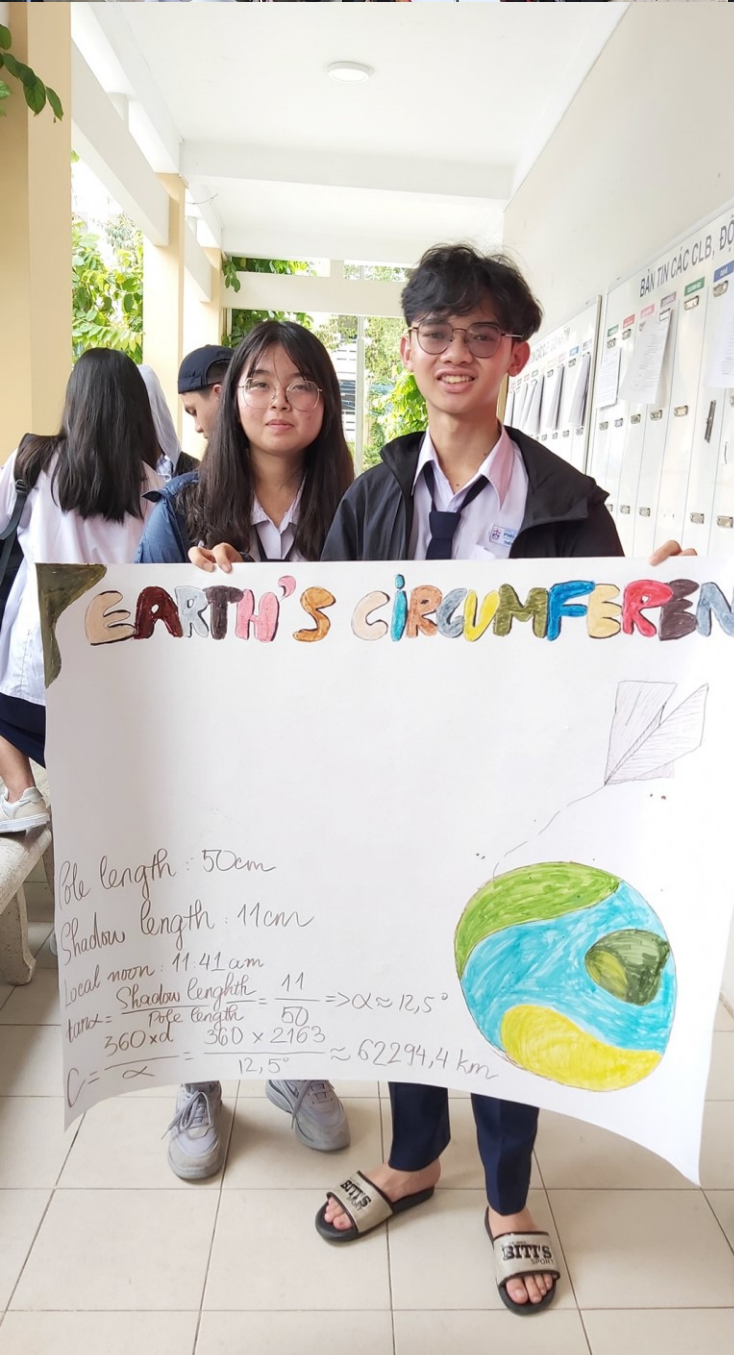 BẢN TIN CÁC CLB, ĐỘ
EARTH'S CIRCUMFEREN
Pole length: 50cm
Shadow length: 11cm
Local noon: 11:41am
tanα = Shadow lenghth / Pole length = 11/50 => α ≈ 12,5°
C = 360xd / α = 360 x 2163 / 12,5° ≈ 62294,4 km
BITI'S
SPORT
BITI'S
SPORT